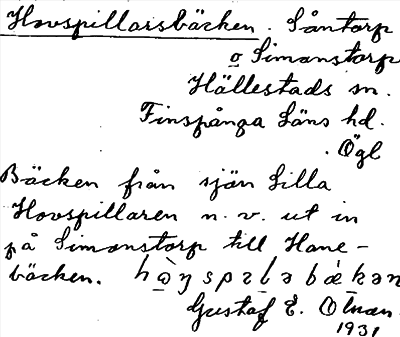 Hovspillarsbäcken. Såntorp
o Simonstorp
Hällestads sn.
Finspånga Läns hd.
Ögl
Bäcken från sjön Lilla
Hovspillaren n. v. ut in
på Simonstorp till Hane-
bäcken.
Gustaf E. Oman.
1931